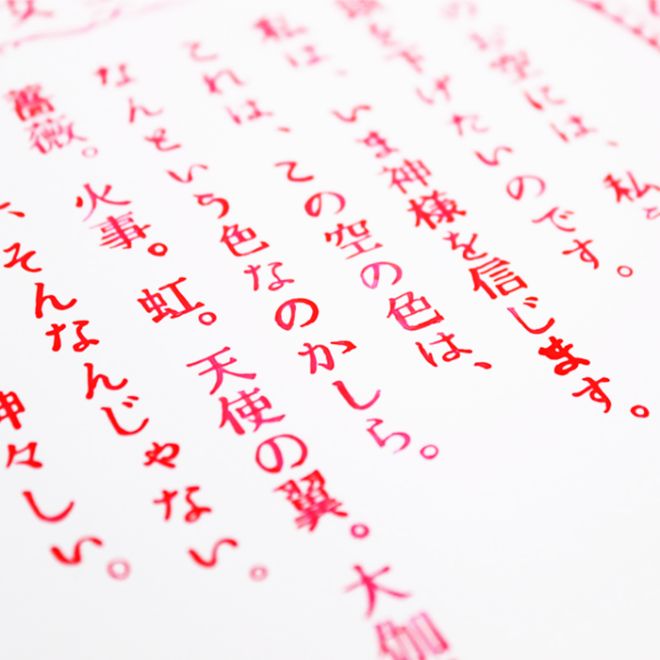 のお空には、私
頭を下げたいのです。
私は、いま神様を信じます。
これは、この空の色は、
なんという色なのかしら。
薔薇。火事。虹。天使の翼。大伽
、そんなんじゃない。
神々しい。